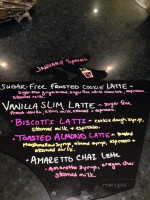 JANUARY Specials
SUGAR-FREE FROSTED COOKIE LATTE -
sugar free gingerbread, sugar free white chocolate, espresso,
steamed milk.
VANILLA SLIM LATTE - sugar free
french vanilla, skim milk, steamed + espresso.
• BISCOTTI LATTE - cookie dough syrup,
steamed milk + espresso.
• TOASTED ALMOND LATTE - toasted
Marshmallow syrup, almond syrup, espresso
steamed milk.
• AMARETTO CHAI Latte
- Amaretto syrup, oregon chai
steamed milk.